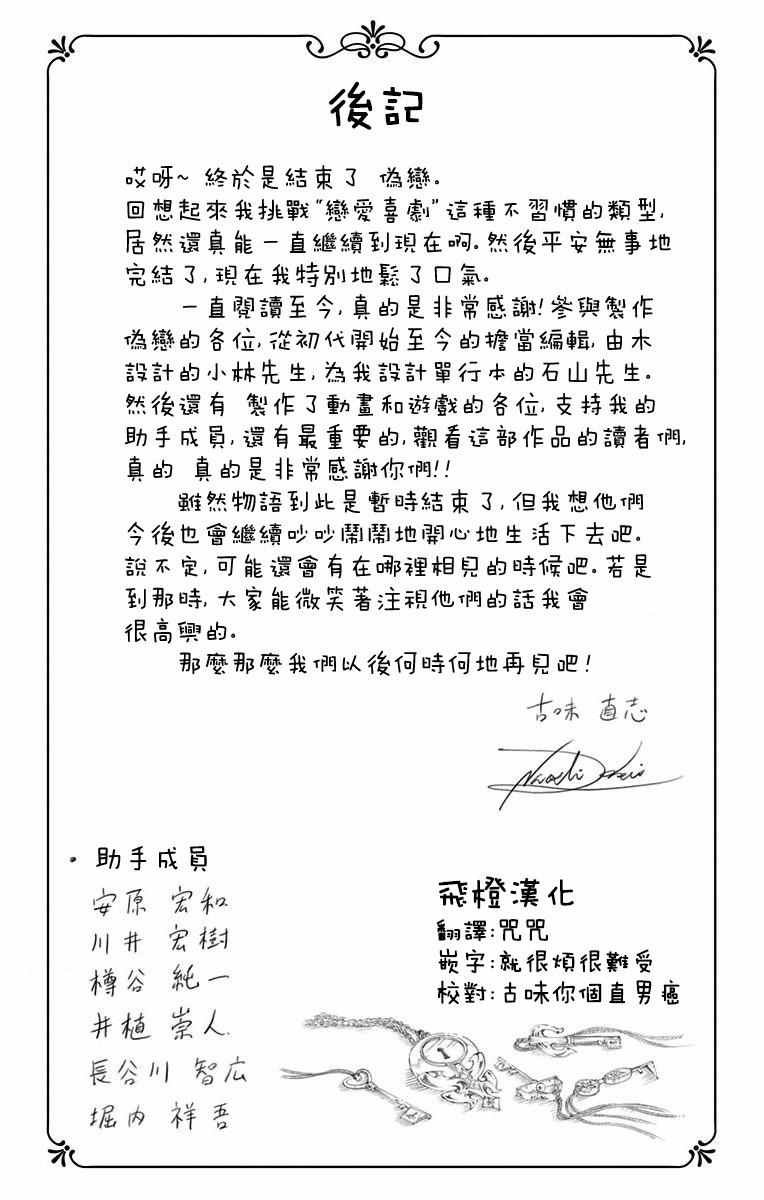 後記
哎呀~ 終於是結束了 偽戀.
回想起來我挑戰"戀愛喜劇"這種不習慣的類型,
居然還真能一直繼續到現在啊.然後平安無事地
完結了,現在我特別地鬆了口氣.
一直閱讀至今,真的是非常感謝!參與製作
偽戀的各位,從初代開始至今的擔當編輯,由木
設計的小林先生,為我設計單行本的石山先生.
然後還有 製作了動畫和遊戲的各位,支持我的
助手成員,還有最重要的,觀看這部作品的讀者們,
真的 真的是非常感謝你們!!
雖然物語到此是暫時結束了,但我想他們
今後也會繼續吵吵鬧鬧地開心地生活下去吧.
說不定,可能還會有在哪裡相見的時候吧.若是
到那時,大家能微笑著注視他們的話我會
很高興的.
那麼那麼我們以後何時何地再見吧!
古味 直志
・助手成員
安原 宏和
川井 宏樹
樽谷 純一
井植 崇人
長谷川 智広
堀内 祥吾
飛橙漢化
翻譯:咒咒
嵌字:就很煩很難受
校對:古味你個直男癌